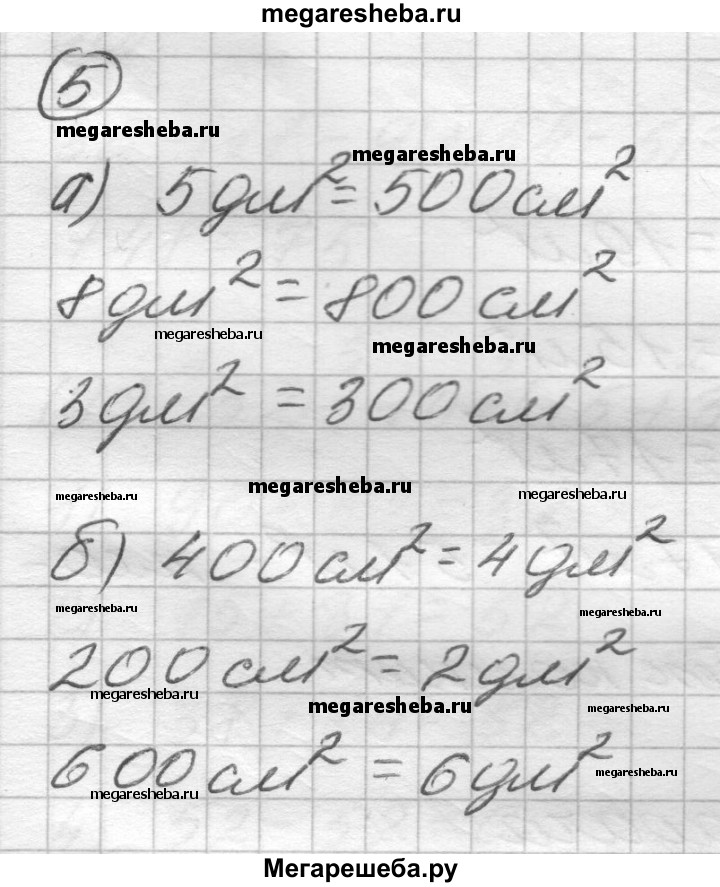 megaresheba.ru
5
megaresheba.ru
megaresheba.ru
а) 5дм² = 500см²
8дм² = 800см²
megaresheba.ru
megaresheba.ru
3дм² = 300см²
megaresheba.ru megaresheba.ru megaresheba.ru
б) 400см² = 4дм²
megaresheba.ru megaresheba.ru
200см² = 2дм²
megaresheba.ru megaresheba.ru megaresheba.ru
600см² = 6дм²
megaresheba.ru
megaresheba.ru
Мегарешеба.ру